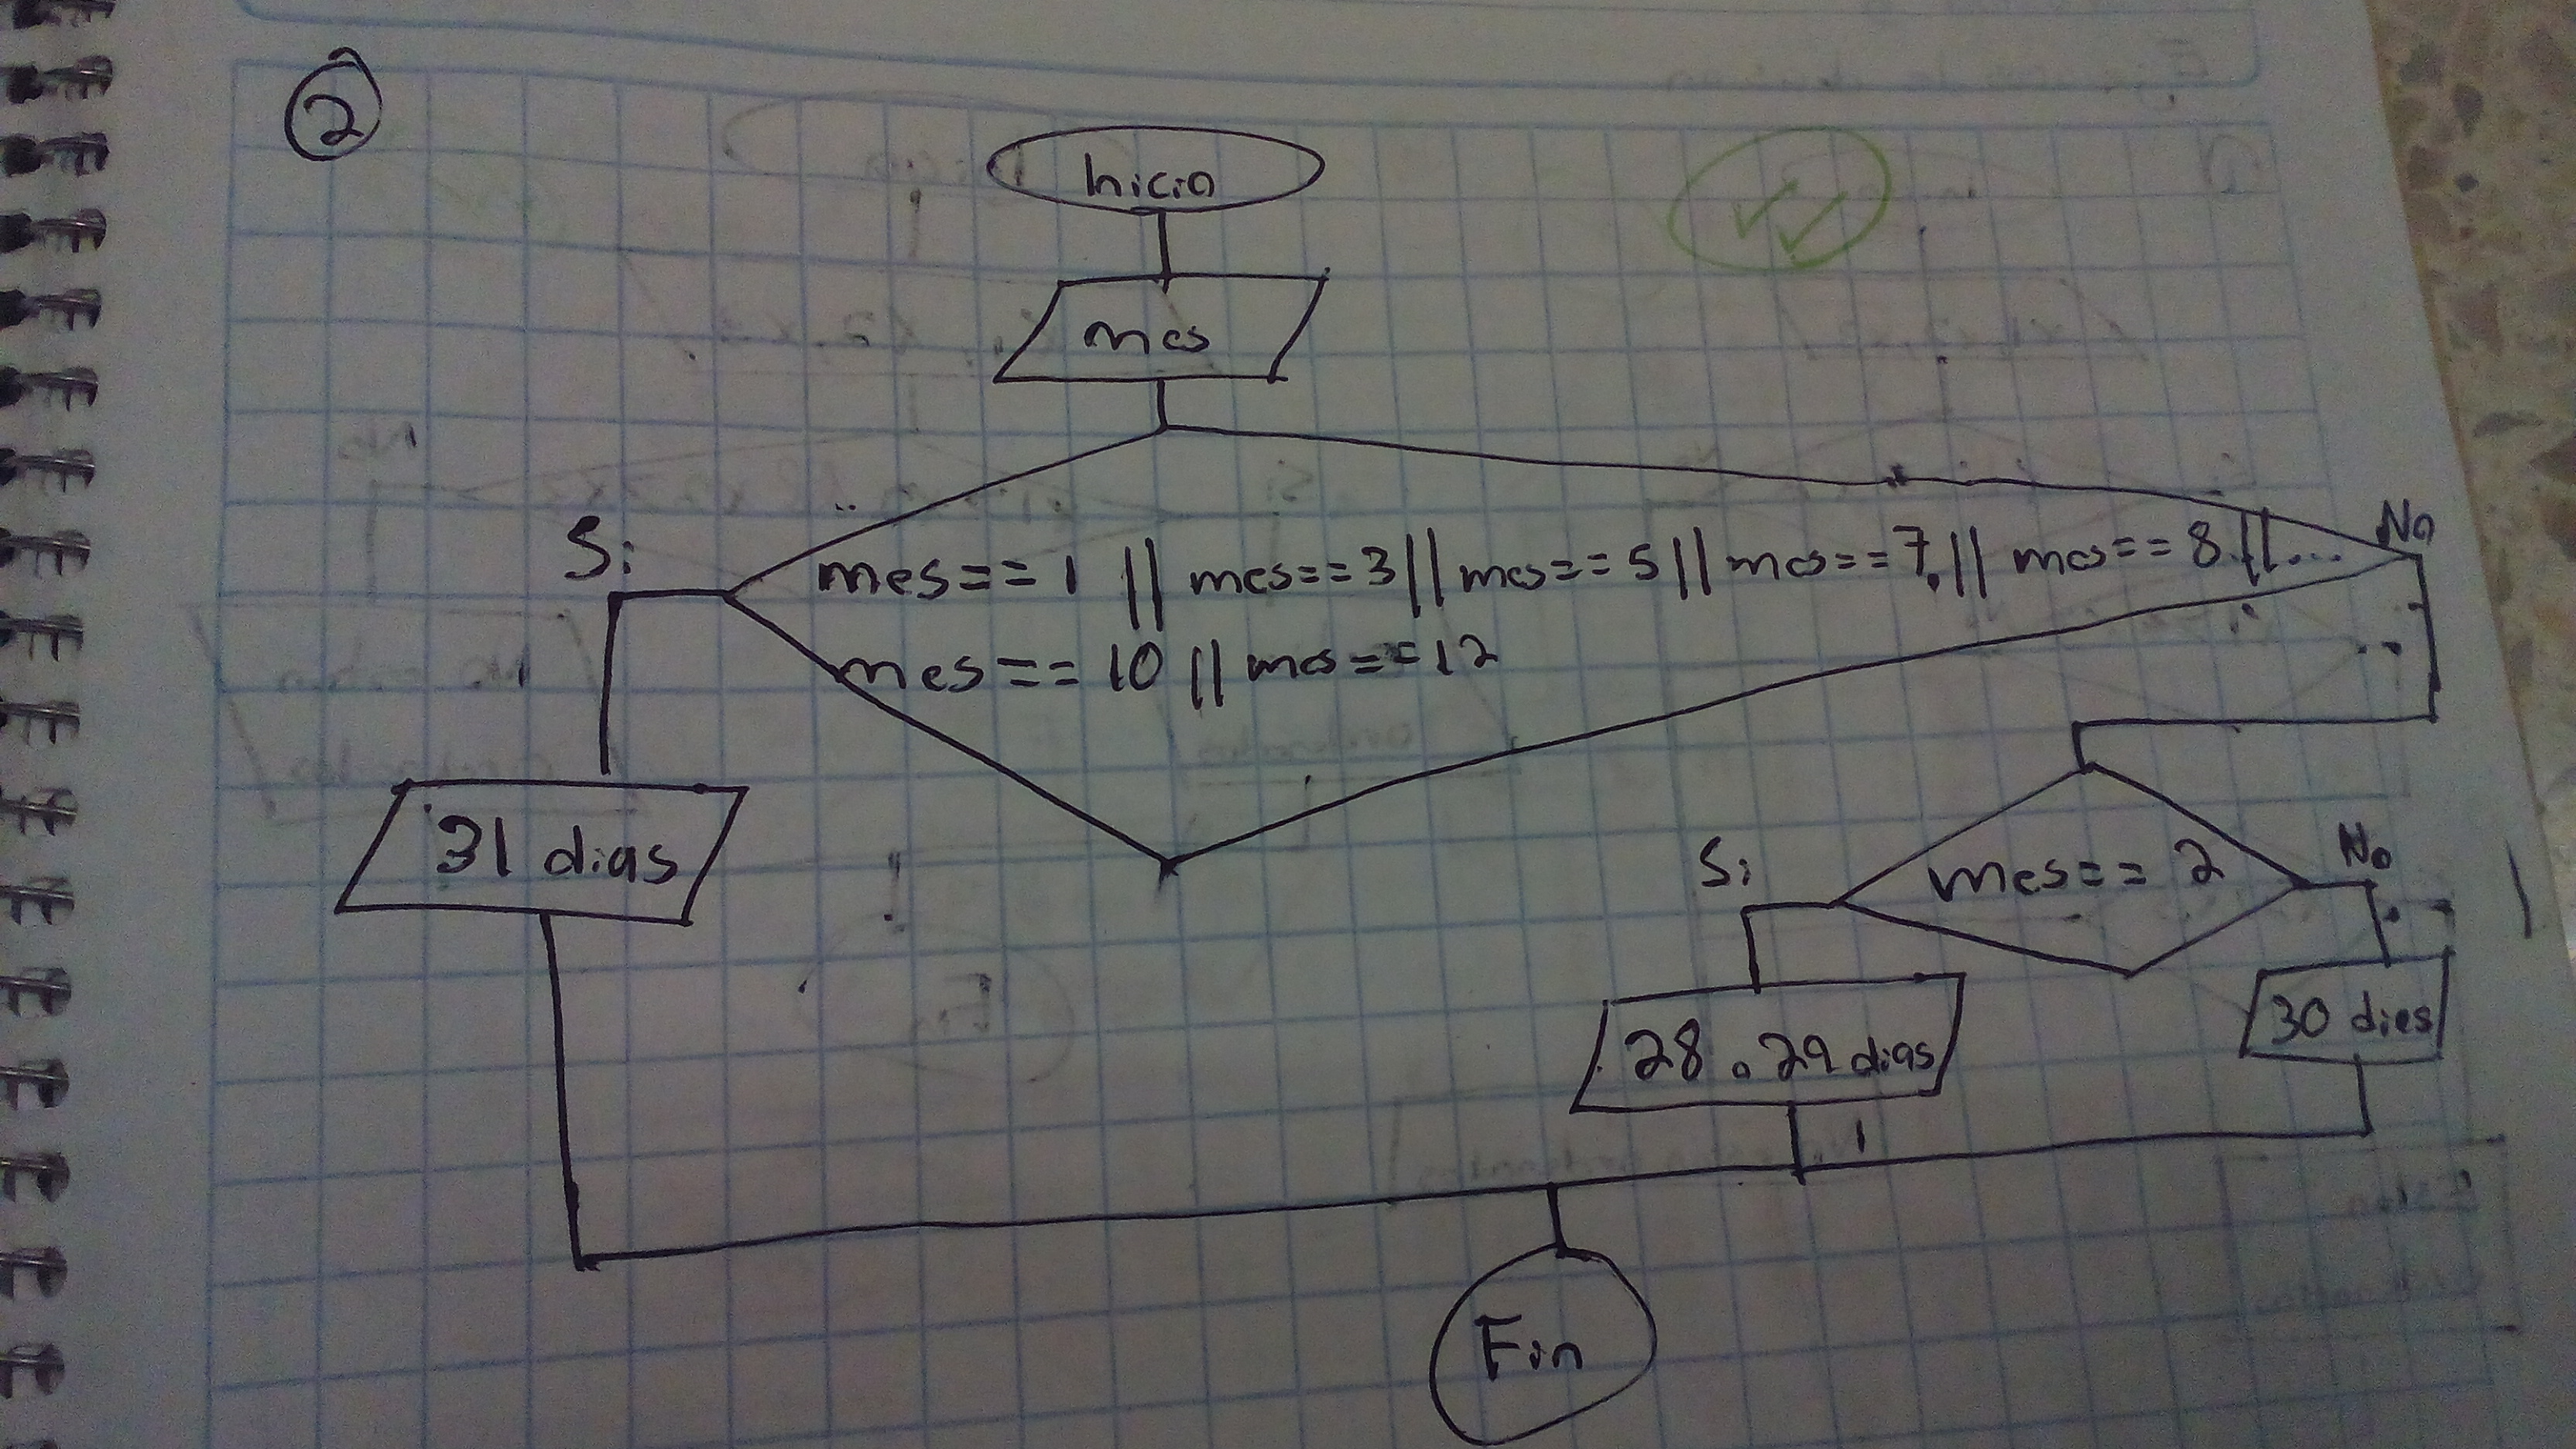 2
Inicio
mes
Si
No
mes==1 || mes==3 || mes==5 || mes==7 || mes==8 || ...
mes==10 || mes==12
31 dias
Si
mes==2
No
28 o 29 dias
30 dias
Fin